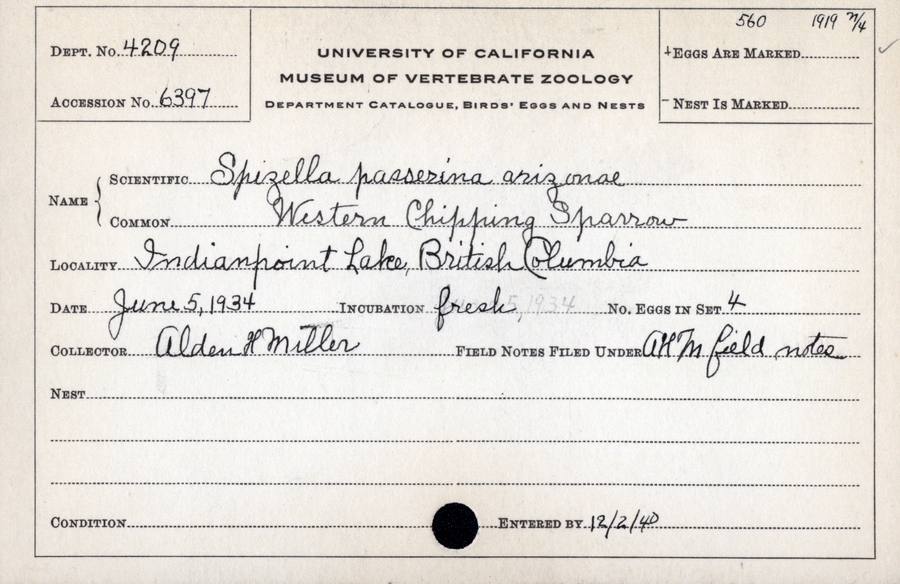 560 1919 n/4
DEPT. No. 4209
UNIVERSITY OF CALIFORNIA
+EGGS ARE MARKED
MUSEUM OF VERTEBRATE ZOOLOGY
ACCESSION No. 6397
DEPARTMENT CATALOGUE, BIRDS' EGGS AND NESTS
- NEST IS MARKED
NAME
SCIENTIFIC Spizella passerina arizonae
COMMON Western Chipping Sparrow
LOCALITY Indianpoint Lake, British Columbia
DATE June 5, 1934 INCUBATION fresh 5, 1934 No. EGGS IN SET 4
COLLECTOR Alden H Miller FIELD NOTES FILED UNDER AHM field notes
NEST
CONDITION ENTERED BY 12/2/40